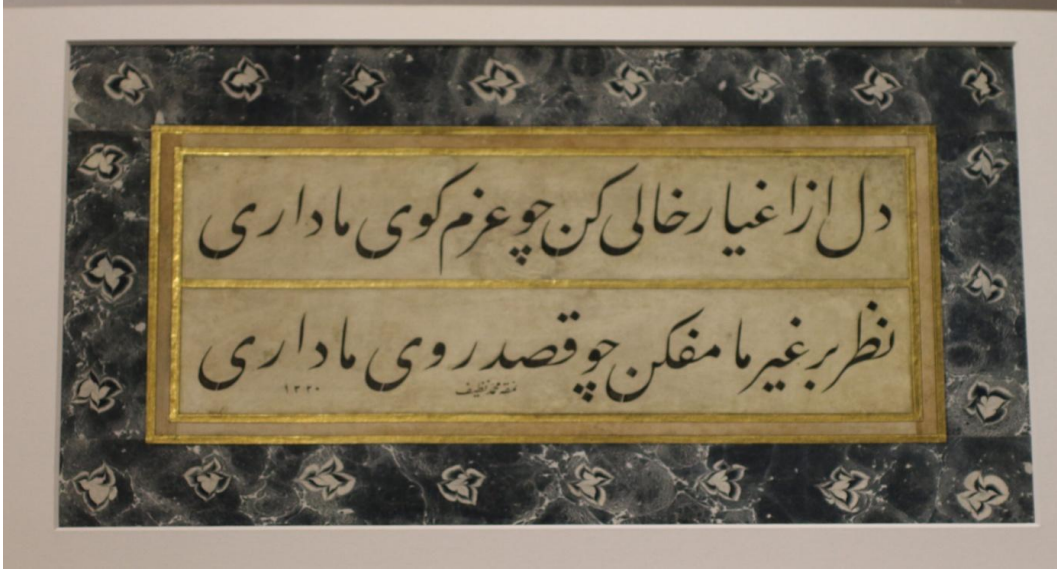 دل از اغیار خالی کن چو عزم کوی ما داری
نظر بر غیر ما مفکن چو قصد روی ما داری
نمقه محمد نظیف ۱۳۳۰